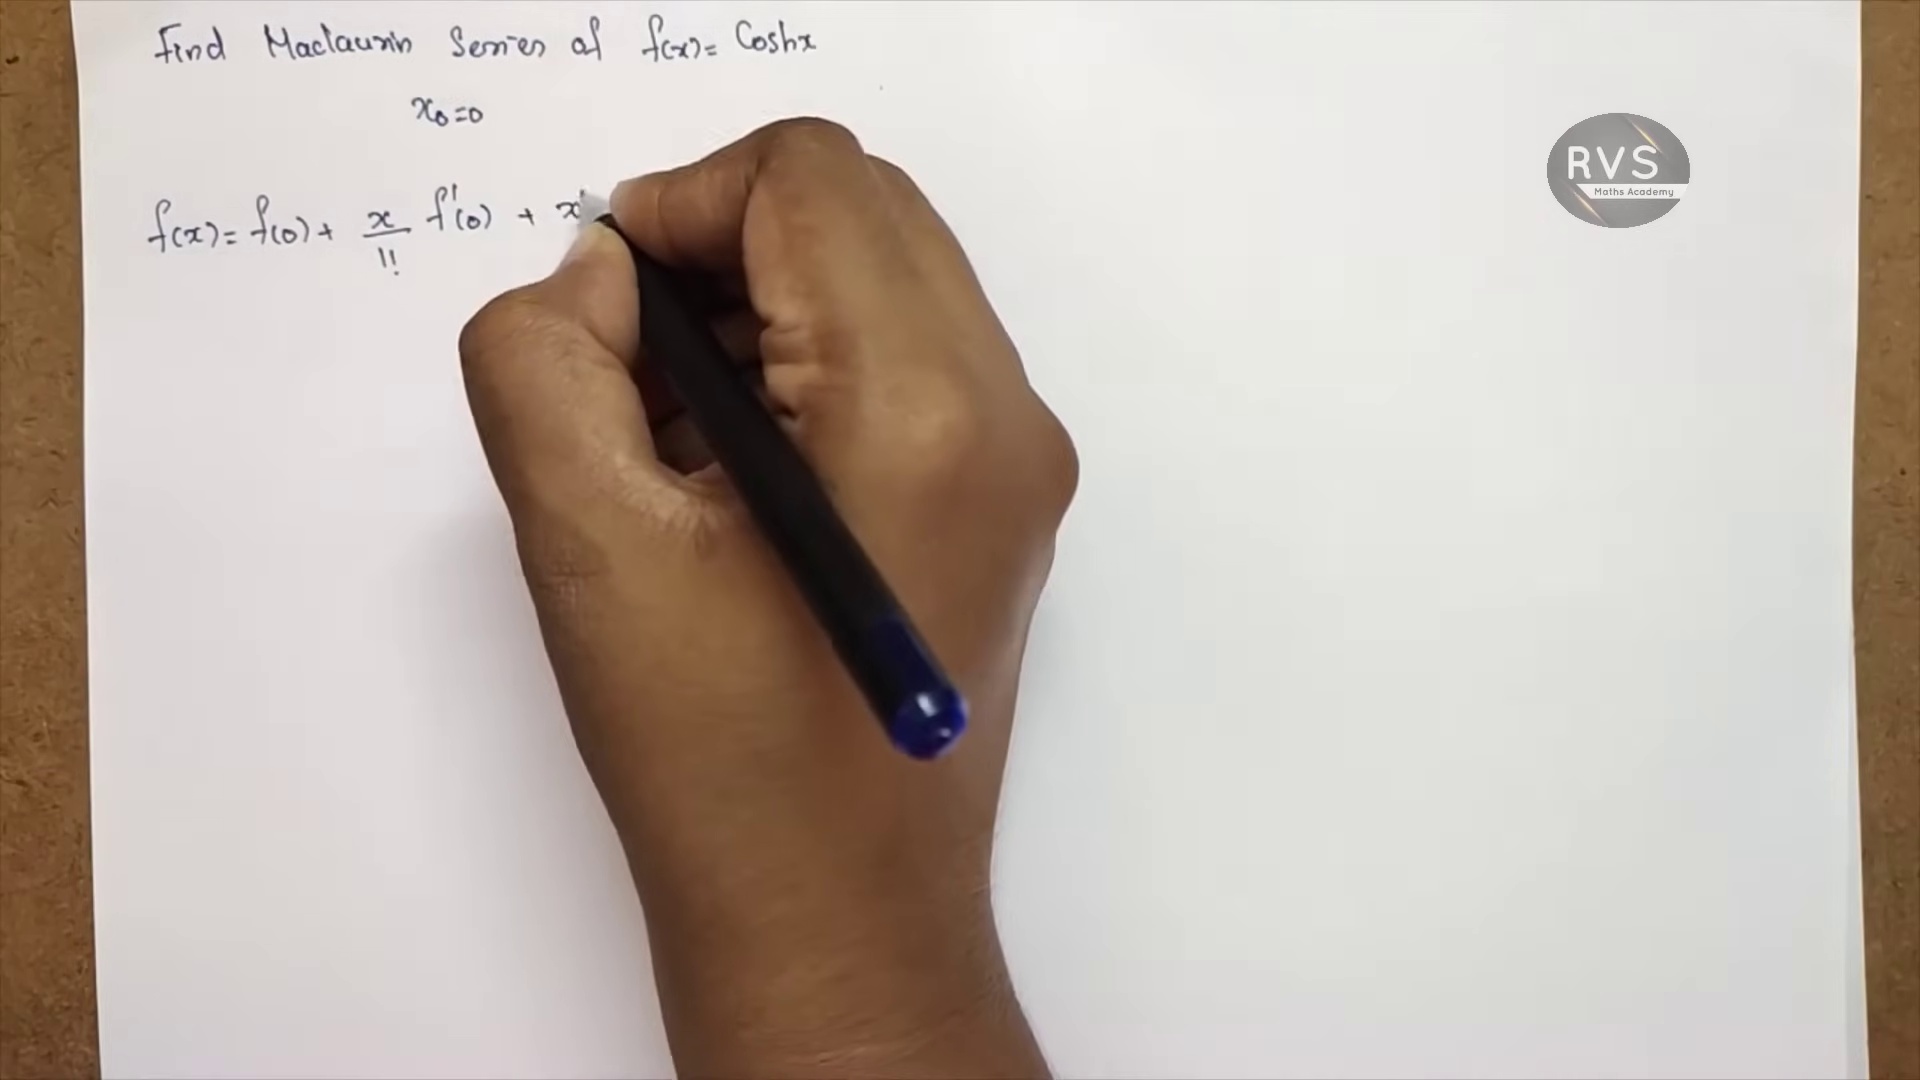 Find Maclaurin Series of f(x)= Coshx
x₀=0
f(x)= f(0)+ x/1! f'(0) + x
RVS
Maths Academy